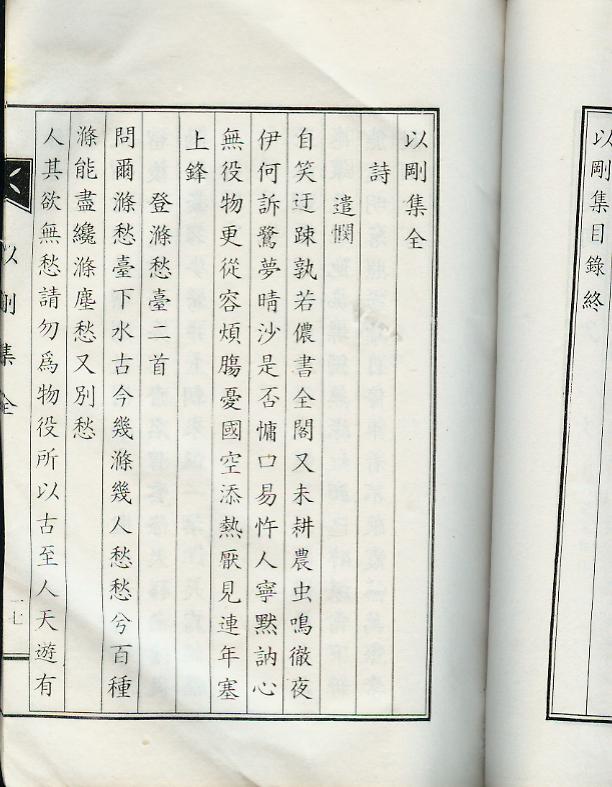 以剛集目錄終
以剛集全
詩
遣憫
自笑迂踈孰若儂書全閣又未耕農虫鳴徹夜
伊何訴鷺夢晴沙是否慵口易忤人寧默訥心
無役物更從容煩膓憂國空添熱厭見連年塞
上鋒
登滌愁臺二首
問爾滌愁臺下水古今幾滌幾人愁愁兮百種
滌能盡纔滌塵愁又別愁
人其欲無愁請勿爲物役所以古至人天遊有
以剛集全
一七